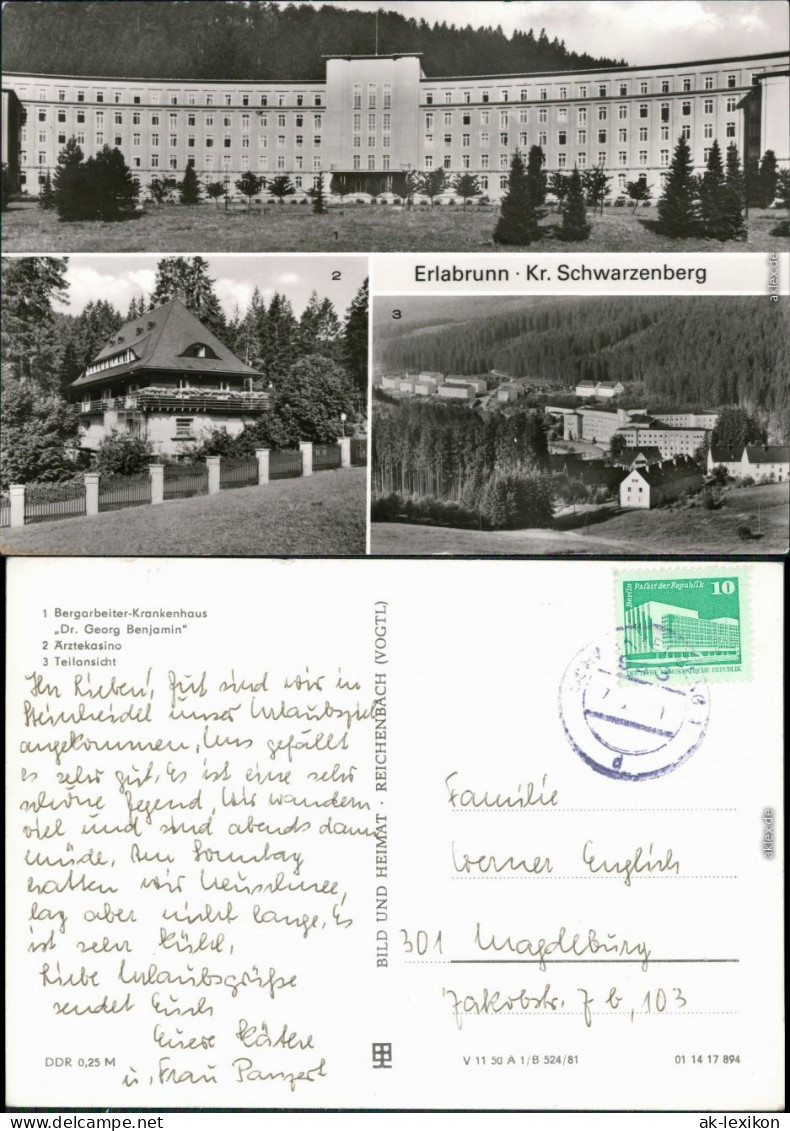 1
2
Erlabrunn · Kr. Schwarzenberg
3
aklex.de
1 Bergarbeiter-Krankenhaus
„Dr. Georg Benjamin"
2 Ärztekasino
3 Teilansicht
Ihr Lieben! Gut sind wir in
Steinheidel unser Urlaubsziel
angekommen, Uns gefällt
es sehr gut, Es ist eine sehr
schöne Gegend, Wir wandern
viel und sind abends dann
müde, Am Sonntag
hatten wir Neuschnee,
lag aber nicht lange, Es
ist sehr kühl,
Liebe Urlaubsgrüße
sendet Euch
Eure Käthe
u, Frau Panzert
DDR 0,25 M
BILD UND HEIMAT · REICHENBACH (VOGTL)
Berlin Palast der Republik 10
DEUTSCHE DEMOKRATISCHE REPUBLIK
d
Familie
Werner Englich
301 Magdeburg
Jakobstr. 7 b, 103
V 11 50 A 1/B 524/81
01 14 17 894
aklex.de
www.ak-ansichtskarten.de
ak-lexikon